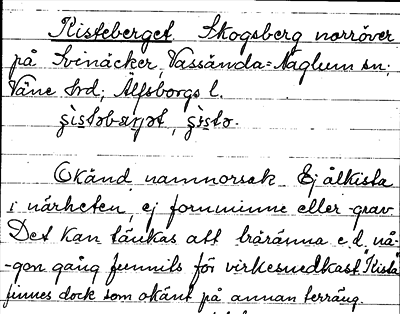 Kisteberget. Skogsberg norröver
på Svinåcker, Vassända-Naglum sn;
Väne hd; Älfsborgs l.
Okänd namnorsak. Ej ålkista
i närheten, ej fornminne eller grav.
Det kan tänkas att träränna e.d. nå-
-gon gång funnits för virkesnedkast. "Kista"
finnes dock som okänt på annan terräng.